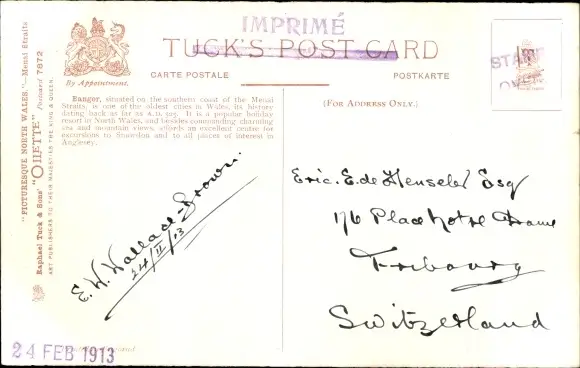 IMPRIMÉ
TUCK'S POST CARD
By Appointment.
CARTE POSTALE
POSTKARTE
Bangor, situated on the southern coast of the Menai
Straits, is one of the oldest cities in Wales, its history
dating back as far as A.D. 525. It is a popular holiday
resort in North Wales, and besides commanding charming
sea and mountain views, affords an excellent centre for
excursions to Snowdon and to all places of interest in
Anglesey.
(FOR ADDRESS ONLY.)
STAMP
"PICTURESQUE NORTH WALES."—Menai Straits
Raphael Tuck & Sons' "OILETTE" Postcard 7872
ART PUBLISHERS TO THEIR MAJESTIES THE KING & QUEEN.
E. W. Wallace-Brown.
24/II/13
Eric. E. de Henseler Esq
176 Place Notre Dame
Fribourg
Switzerland
24 FEB 1913